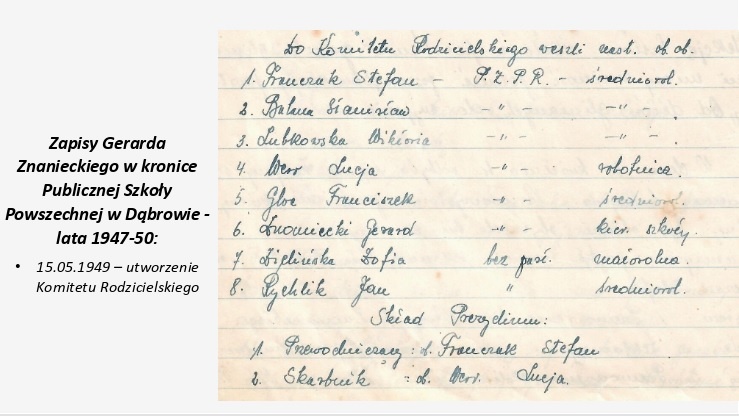 Zapisy Gerarda
Znanieckiego w kronice
Publicznej Szkoły
Powszechnej w Dąbrowie -
lata 1947-50:
• 15.05.1949 – utworzenie
Komitetu Rodzicielskiego
Do Komitetu Rodzicielskiego weszli nast. ob. ob.
1. Franczak Stefan – P.Z.P.R. – średniorol.
2. Stanisław –"– –"– .
3. Lubkowska Wiktoria –"– –"– .
4. Werr Łucja –"– robotnica.
5. Gloc Franciszek –"– średniorol.
6. Gerard –"– kier. szkoły.
7. Zielińska Zofia bez part. małorolna.
8. Rychlik Jan " średniorol.
Skład Prezydium:
1. Przewodniczący: ob. Franczak Stefan
2. Skarbnik : ob. Werr. Łucja.